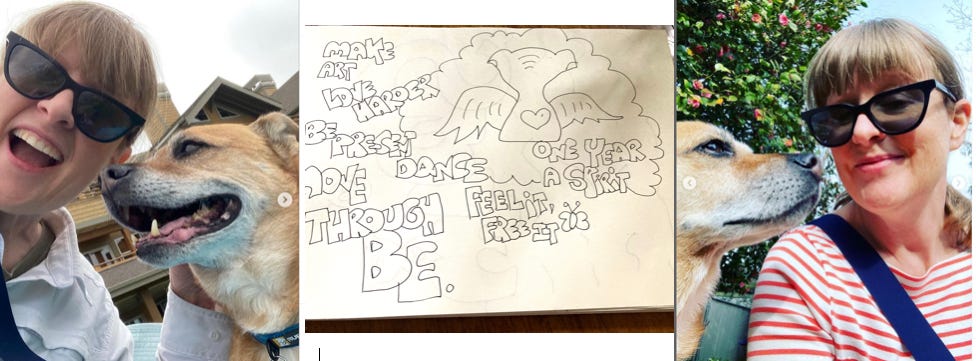 MAKE
ART
LOVE
HARDER
BE
PRESET
DANCE
MOVE
THROUGH
BE.
FEEL IT,
FREE IT
ONE YEAR
A SPIRIT